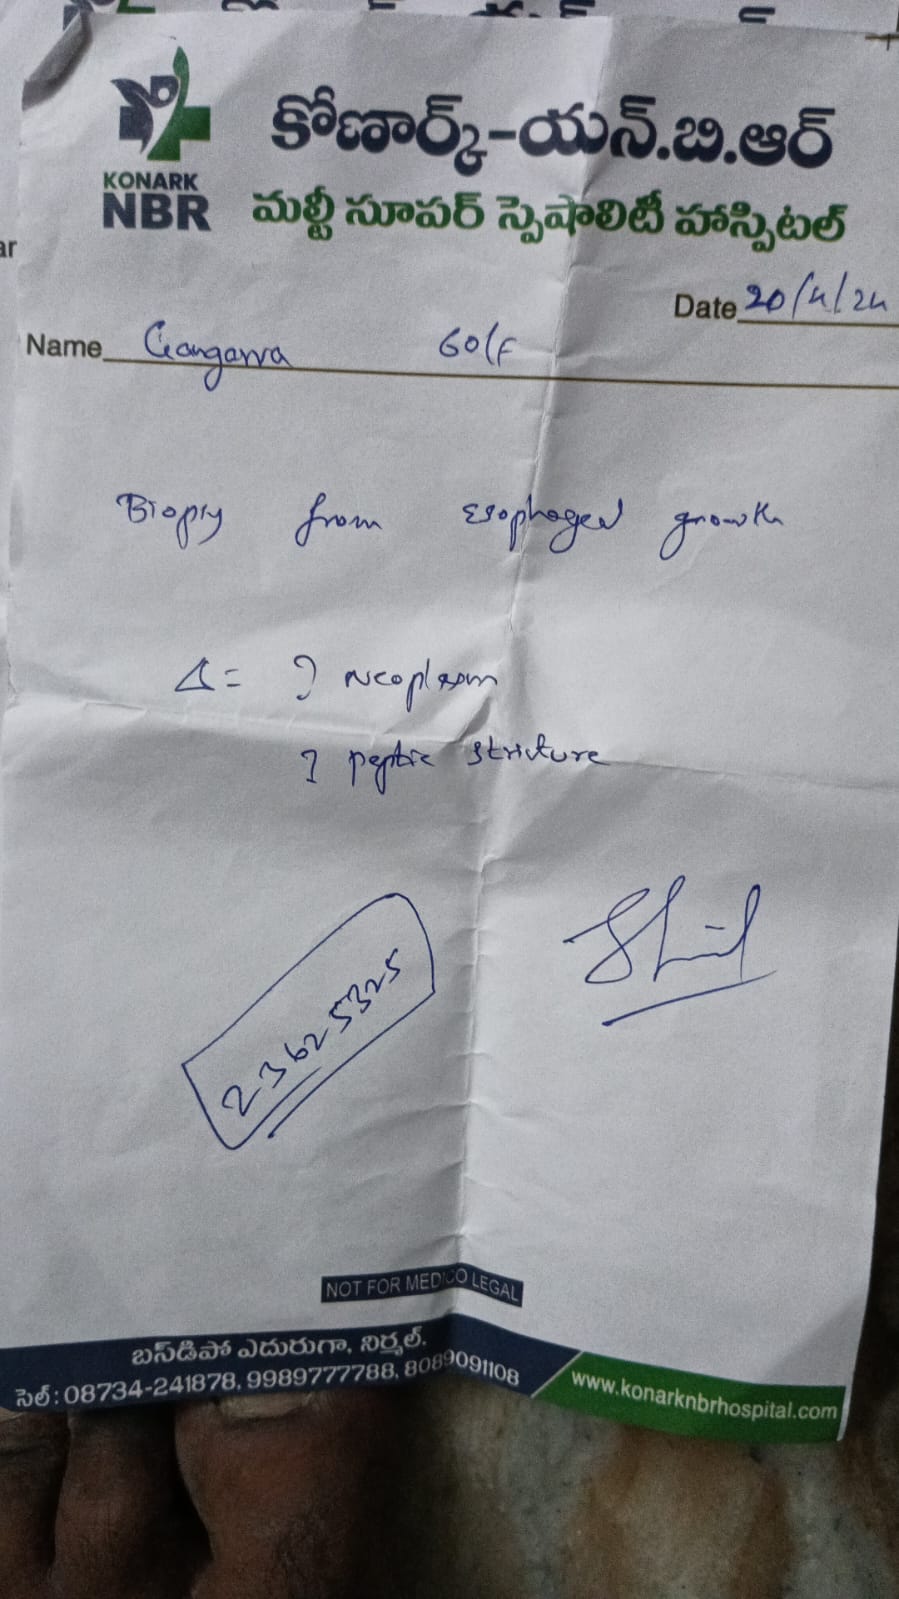 KONARK
NBR
కోణార్క్-యన్.బి.ఆర్
మల్టీ సూపర్ స్పెషాలిటీ హాస్పిటల్
ar
Date 20/4/24
Name Gangavva 60/F
Biopsy from Esophageal growth
Δ= ? Neoplasm
? peptic stricture
23625325
NOT FOR MEDICO LEGAL
బస్‌డిపో ఎదురుగా, నిర్మల్.
సెల్ : 08734-241878, 9989777788, 8089091108
www.konarknbrhospital.com